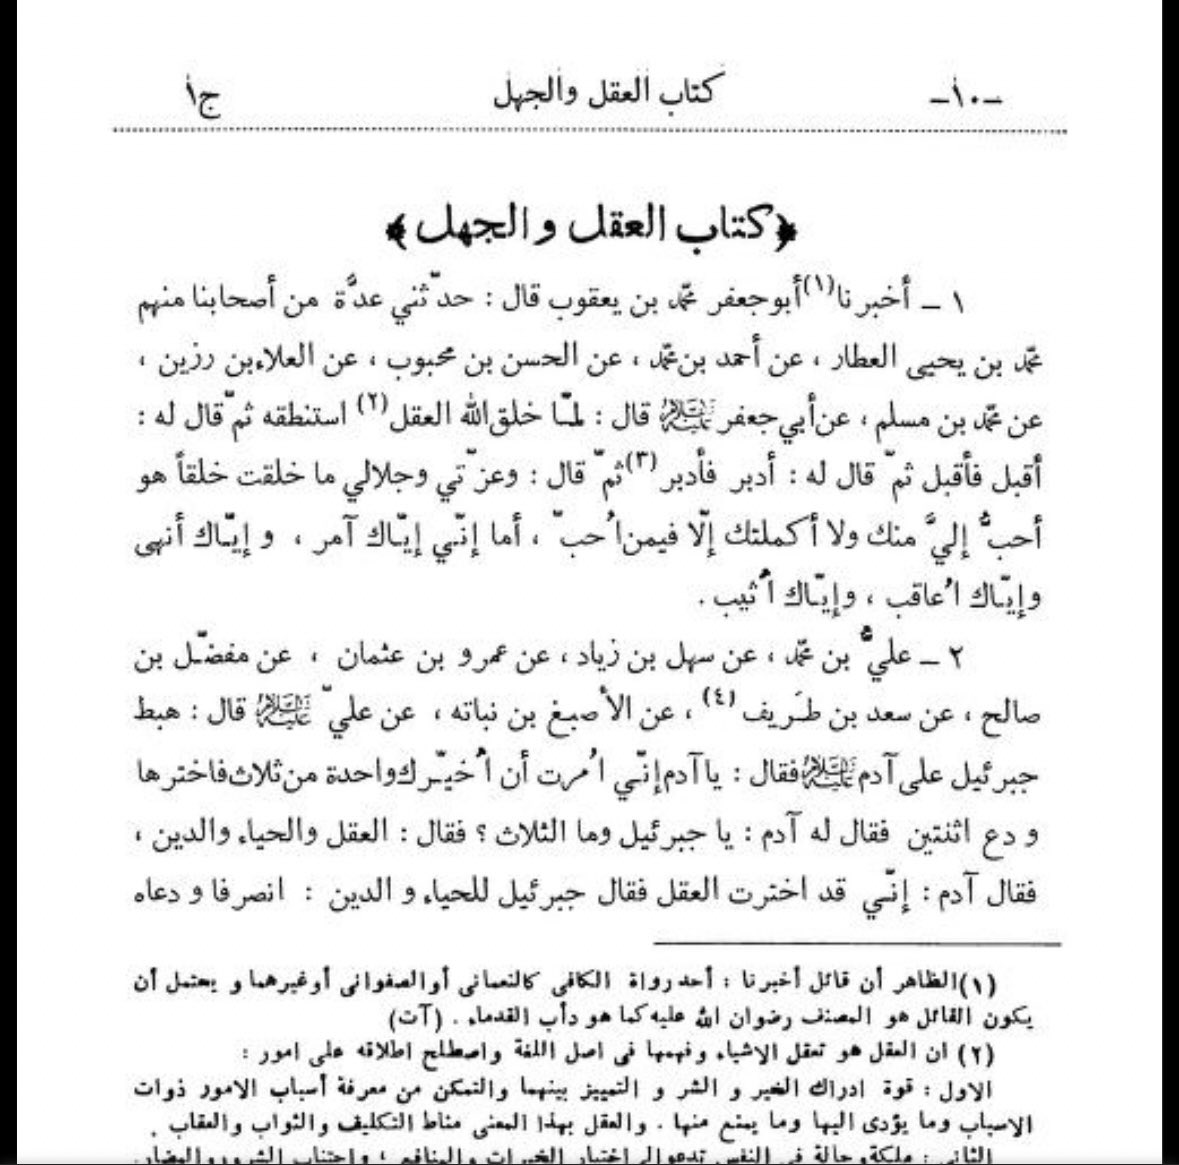 -١٠- كتاب العقل والجهل ج١
﴿كتاب العقل و الجهل﴾
١ ــ أخبرنا(١)أبوجعفر محمّد بن يعقوب قال : حدّثني عدَّة من أصحابنا منهم
محمّد بن يحيى العطار ، عن أحمد بن محمّد ، عن الحسن بن محبوب ، عن العلاء بن رزين ،
عن محمّد بن مسلم ، عن أبي جعفر عليه السلام قال : لمّا خلق الله العقل(٢) استنطقه ثمّ قال له :
أقبل فأقبل ثمّ قال له : أدبر فأدبر(٣)ثمّ قال : وعزّتي وجلالي ما خلقت خلقاً هو
أحبُّ إليَّ منك ولا أكملتك إلّا فيمن اُحبّ ، أما إنّي إيّاك آمر ، و إيّاك أنهى
وإيّاك اُعاقب ، وإيّاك اُثيب .
٢ ــ عليُّ بن محمّد ، عن سهل بن زياد ، عن عمرو بن عثمان ، عن مفضّل بن
صالح ، عن سعد بن طَريف(٤) ، عن الأصبغ بن نباته ، عن عليّ عليه السلام قال : هبط
جبرئيل على آدم عليه السلام فقال : يا آدم إنّي اُمرت أن اُخيّرك واحدة من ثلاث فاخترها
و دع اثنتين فقال له آدم : يا جبرئيل وما الثلاث ؟ فقال : العقل والحياء والدين ،
فقال آدم : إنّي قد اخترت العقل فقال جبرئيل للحياء و الدين : انصرفا و دعاه
(١)الظاهر أن قائل أخبرنا : أحد رواة الكافى كالنعمانى أو الصفوانى أو غيرهما و يحتمل أن
يكون القائل هو المصنف رضوان الله عليه كما هو دأب القدماء . (آت)
(٢) ان العقل هو تعقل الاشياء وفهمها فى اصل اللغة واصطلح اطلاقه على امور :
الاول : قوة ادراك الخير و الشر و التمييز بينهما والتمكن من معرفة أسباب الامور ذوات
الاسباب وما يؤدى اليها وما يمنع منها . والعقل بهذا المعنى مناط التكليف والثواب والعقاب .
الثانى : ملكة وحالة فى النفس تدعو الى اختيار الخيرات والمنافع ، واجتناب الشرور والمضار.